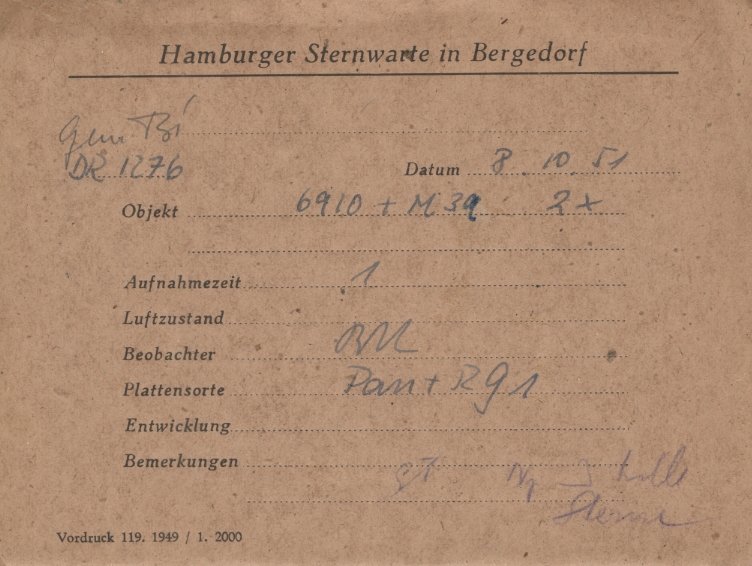 Hamburger Sternwarte in Bergedorf
DR 1276
Datum 8. 10. 51
Objekt 6910 + M 39 2x
Aufnahmezeit 1
Luftzustand
Beobachter
Plattensorte Pan + Rg 1
Entwicklung
Bemerkungen
Sterne
Vordruck 119. 1949 / 1. 2000